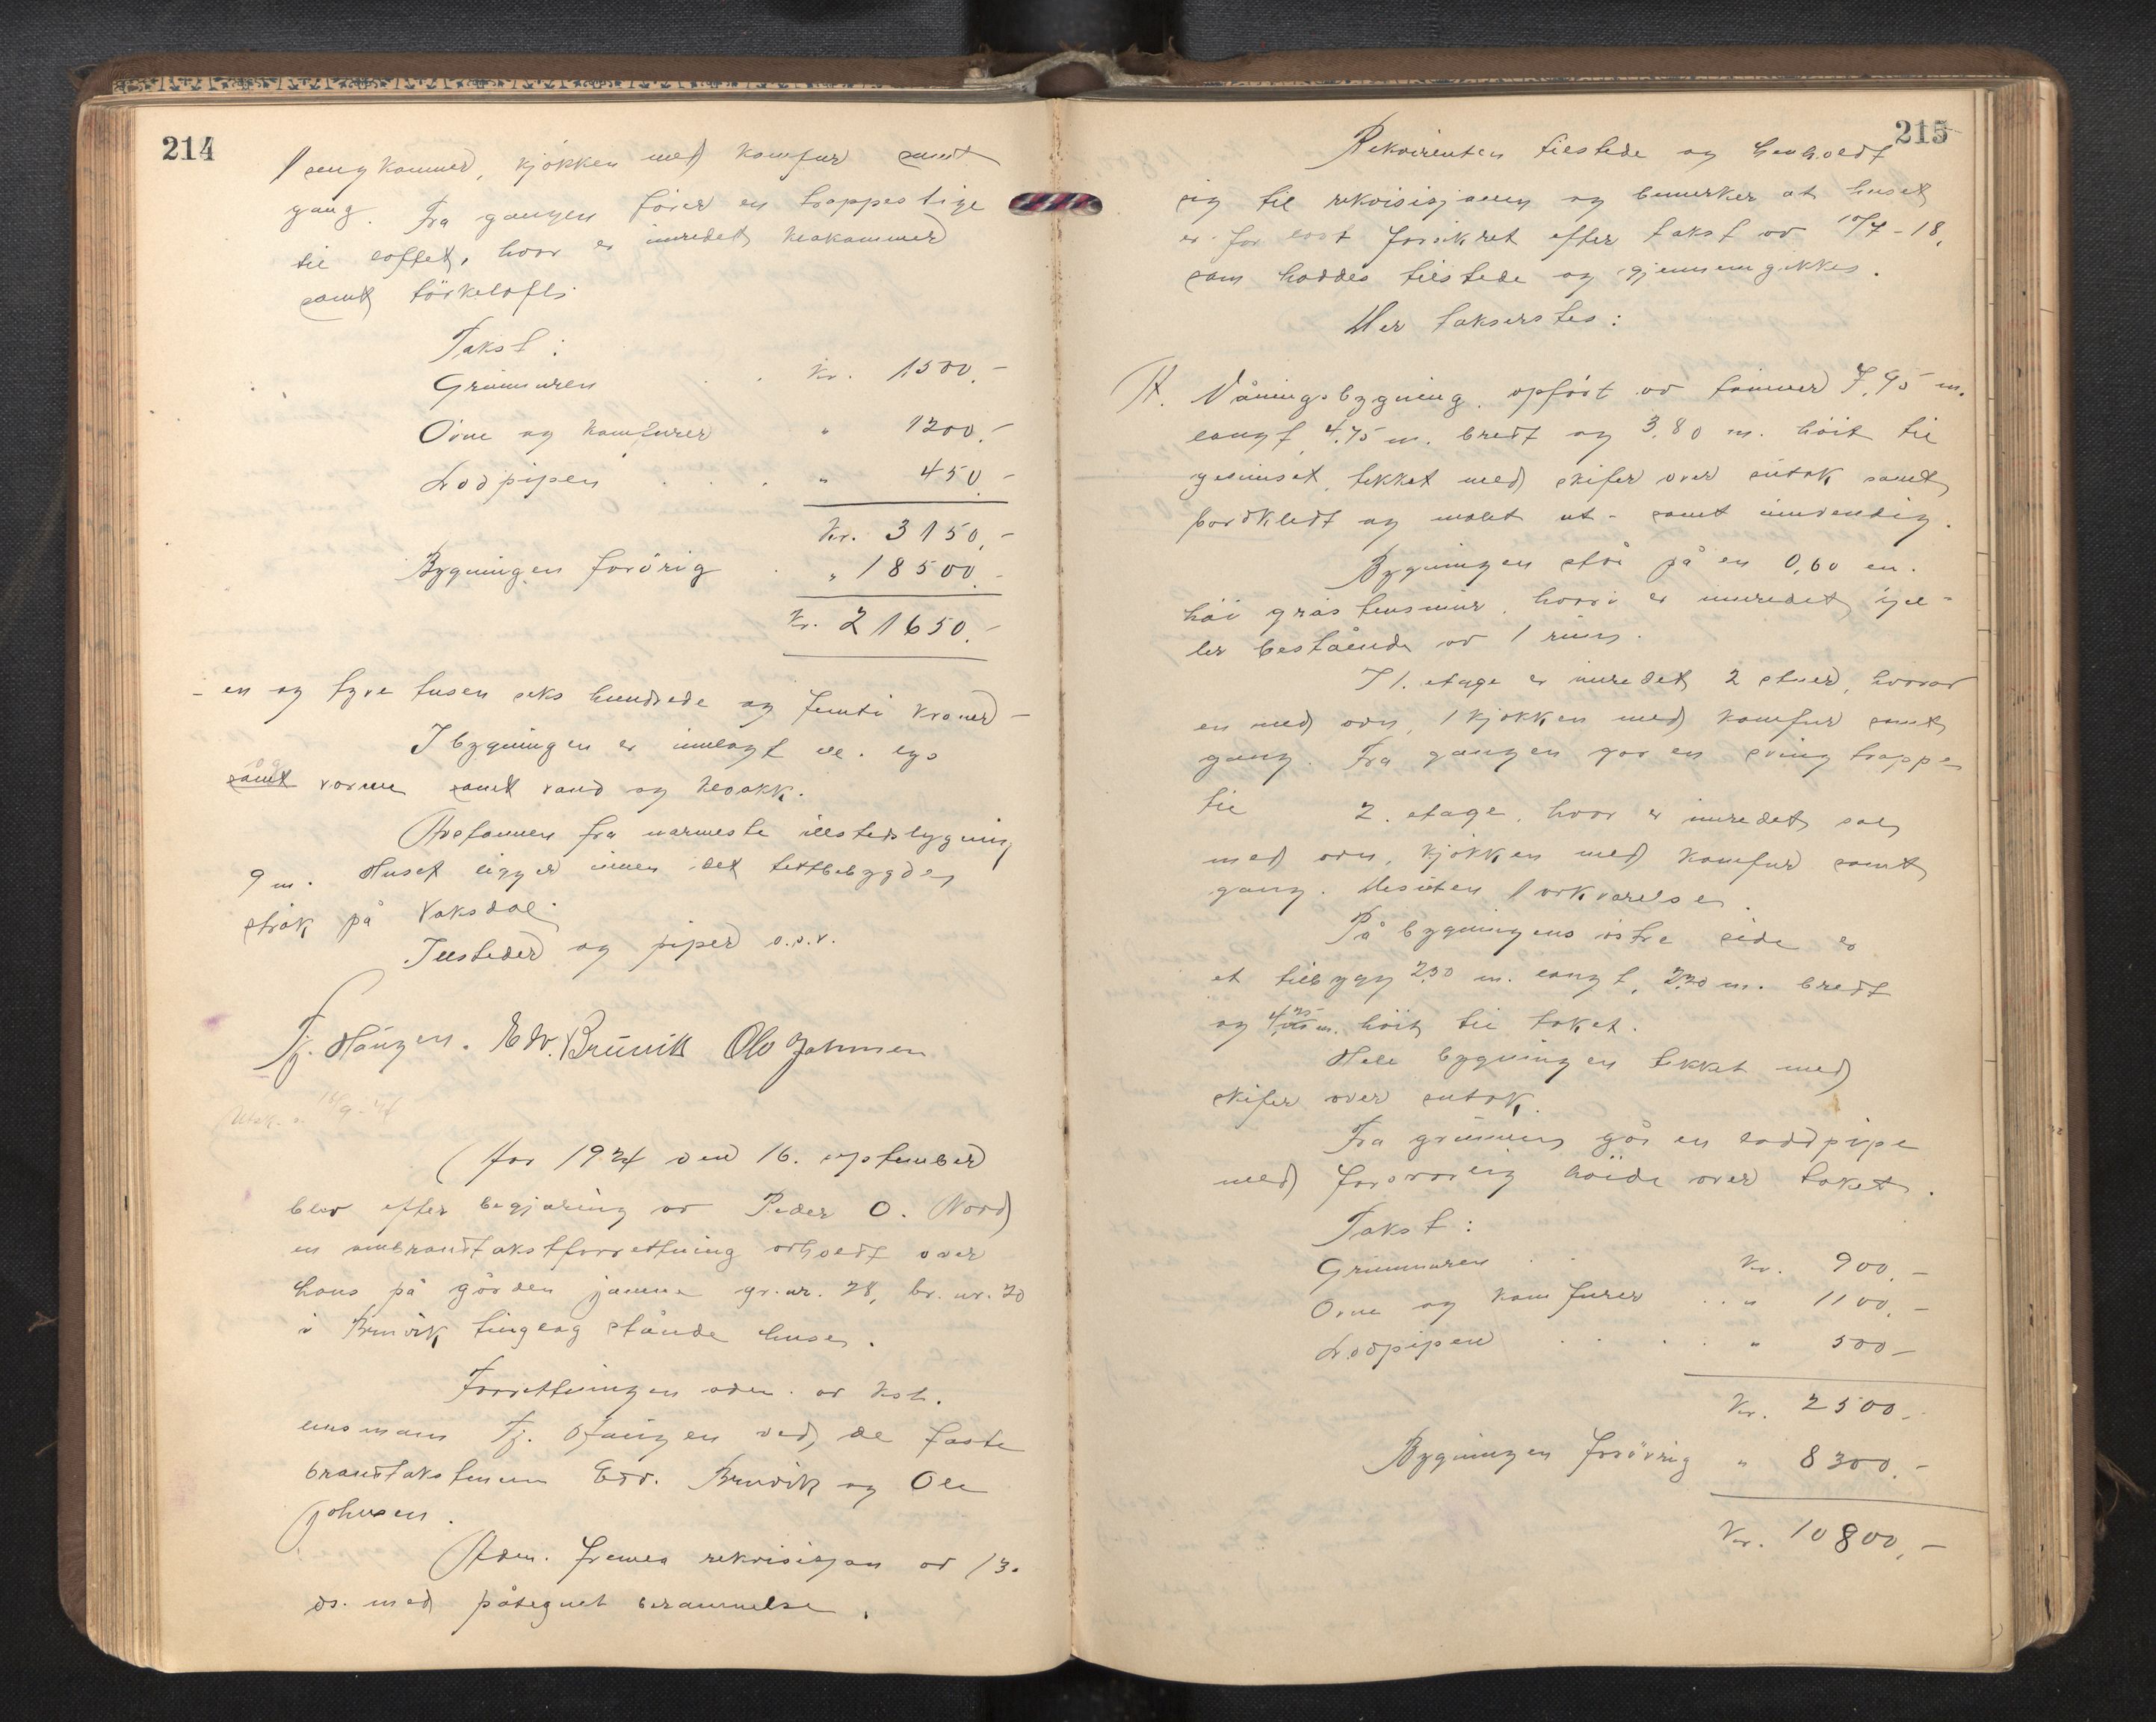 214
1 sengkammer, kjökken med komfur samt
gang. Fra gangen förer en trappestige
til loftet, hvor er inredet
samt törkeloft.
Takst:
Grunmuren . . kr. 1500.-
Ovne og komfurer " 1200.-
Lodpipen . . . " 450.-
Kr. 3150.-
Bygningen forövrig . " 18500.-
Kr. 21650.-
- en og tyve tusen seks hundrede og femti kroner -
I bygningen er innlagt el. lys
og samt varme samt vand og kloakk.
Avstannen fra nærmeste illstedsbygning
9 m. Huset ligger innen det tettbebygde
strök på Vaksdal.
Illsteder og piper o.s.v.
Tj. Haugen. Edv. Bruvik Ole Johnsen
Utsk. s. 16/9-24
År 1924 den 16. september
blev efter begjæring av Peder O. Nord
en ombrandtakstforretning avholdt over
hans på gården Jamne gr.nr. 28, br.nr. 20
i Bruvik tinglag stående huse.
Forretningen adm. av kst.
lensmann Tj. Haugen ved de faste
brandtakstmenn Edv. Bruvik og Ole
Johnsen.
Adm. fremla rekvisisjon av 13.
ds. med påtegnet berammelse.
215
Rekvirenten tilstede og henholdt
sig til rekvisisjonen og bemerker at huset
er for forsikret efter takst av 10/7-18,
som haddes tilstede og gjennemgikkes.
Her takserstes:
A. Våningsbygning, opfört av tömmer 7,95 m.
langt, 4,75 m. bredt og 3,80 m. höit til
gesimset, tekket med skifer over sutak samt
bordkledt og malt ut- samt innvendig.
Bygningen står på en 0,60 m.
höi gråstensmur, hvori er innredet kjel-
ler bestående av 1 rum.
I 1. etage er innredet 2 stuer, hvorav
en med ovn, 1 kjökken med komfur samt
gang. Fra gangen går en svingtrappe
til 2. etage, hvor er innredet sal
med ovn, kjökken med komfur samt
gang. Desuten 1 arkværelse.
På bygningens östre side er
et tilbygg 2,30 m. langt, 2,20 m. bredt
og 4,25 m. höit til taket.
Hele bygningen tekket med
skifer over sutak.
Fra grunnen går en loddpipe
med forsvarlig höide over taket.
Takst:
Grunmuren . . Kr. 900.-
Ovne og komfurer . . " 1100.-
Lodpipen . . . " 500-
Kr. 2500.-
Bygningen forövrig " 8300.-
Kr. 10800.-